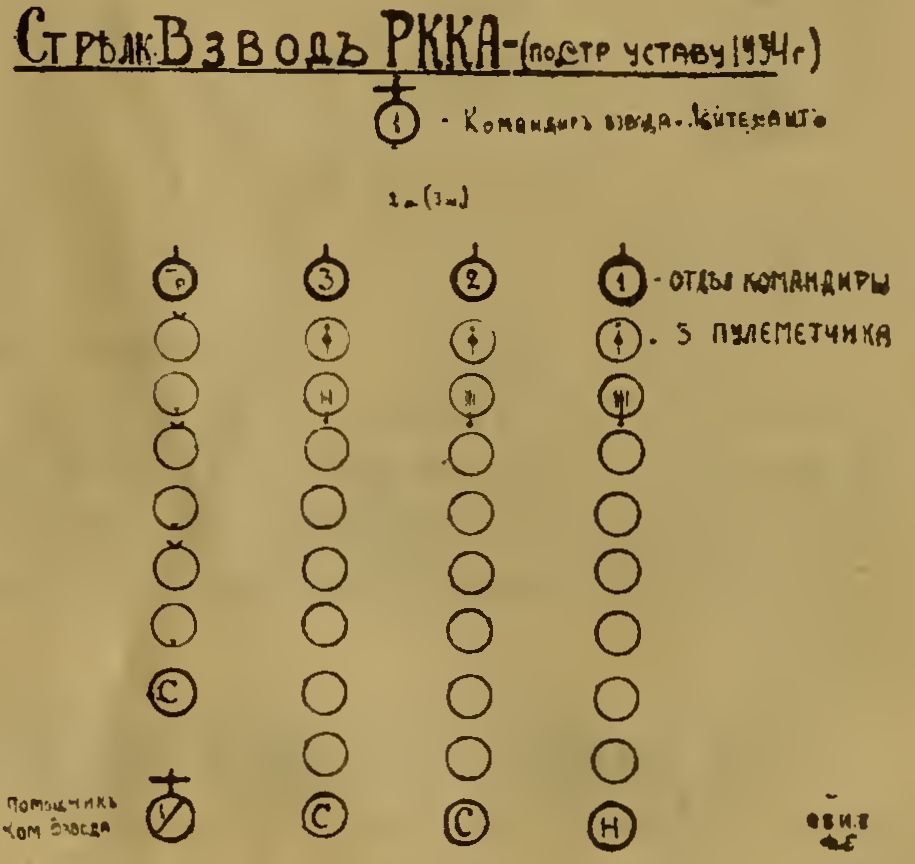 Стрѣлк. Взводъ РККА - (по стр уставу 1934 г)
1 - Командиръ взвода - Лейтенантъ
2 м (3 м)
3 2 1 - отдѣл командиры
3 пулеметчика
Н
С
Помощникъ
ком взвода С С Н